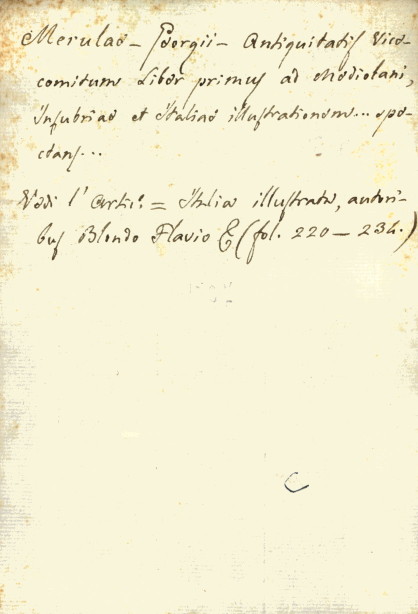 Merulae - Georgii - Antiquitatis Vice-
comitum Liber primus ad Mediolani,
Insubriae et Italiae illustrationem... spe-
ctans...
Vedi l' Artic.º = Italia illustrata, autori-
bus Blondo Flavio & (fol. 220 - 234.)
C